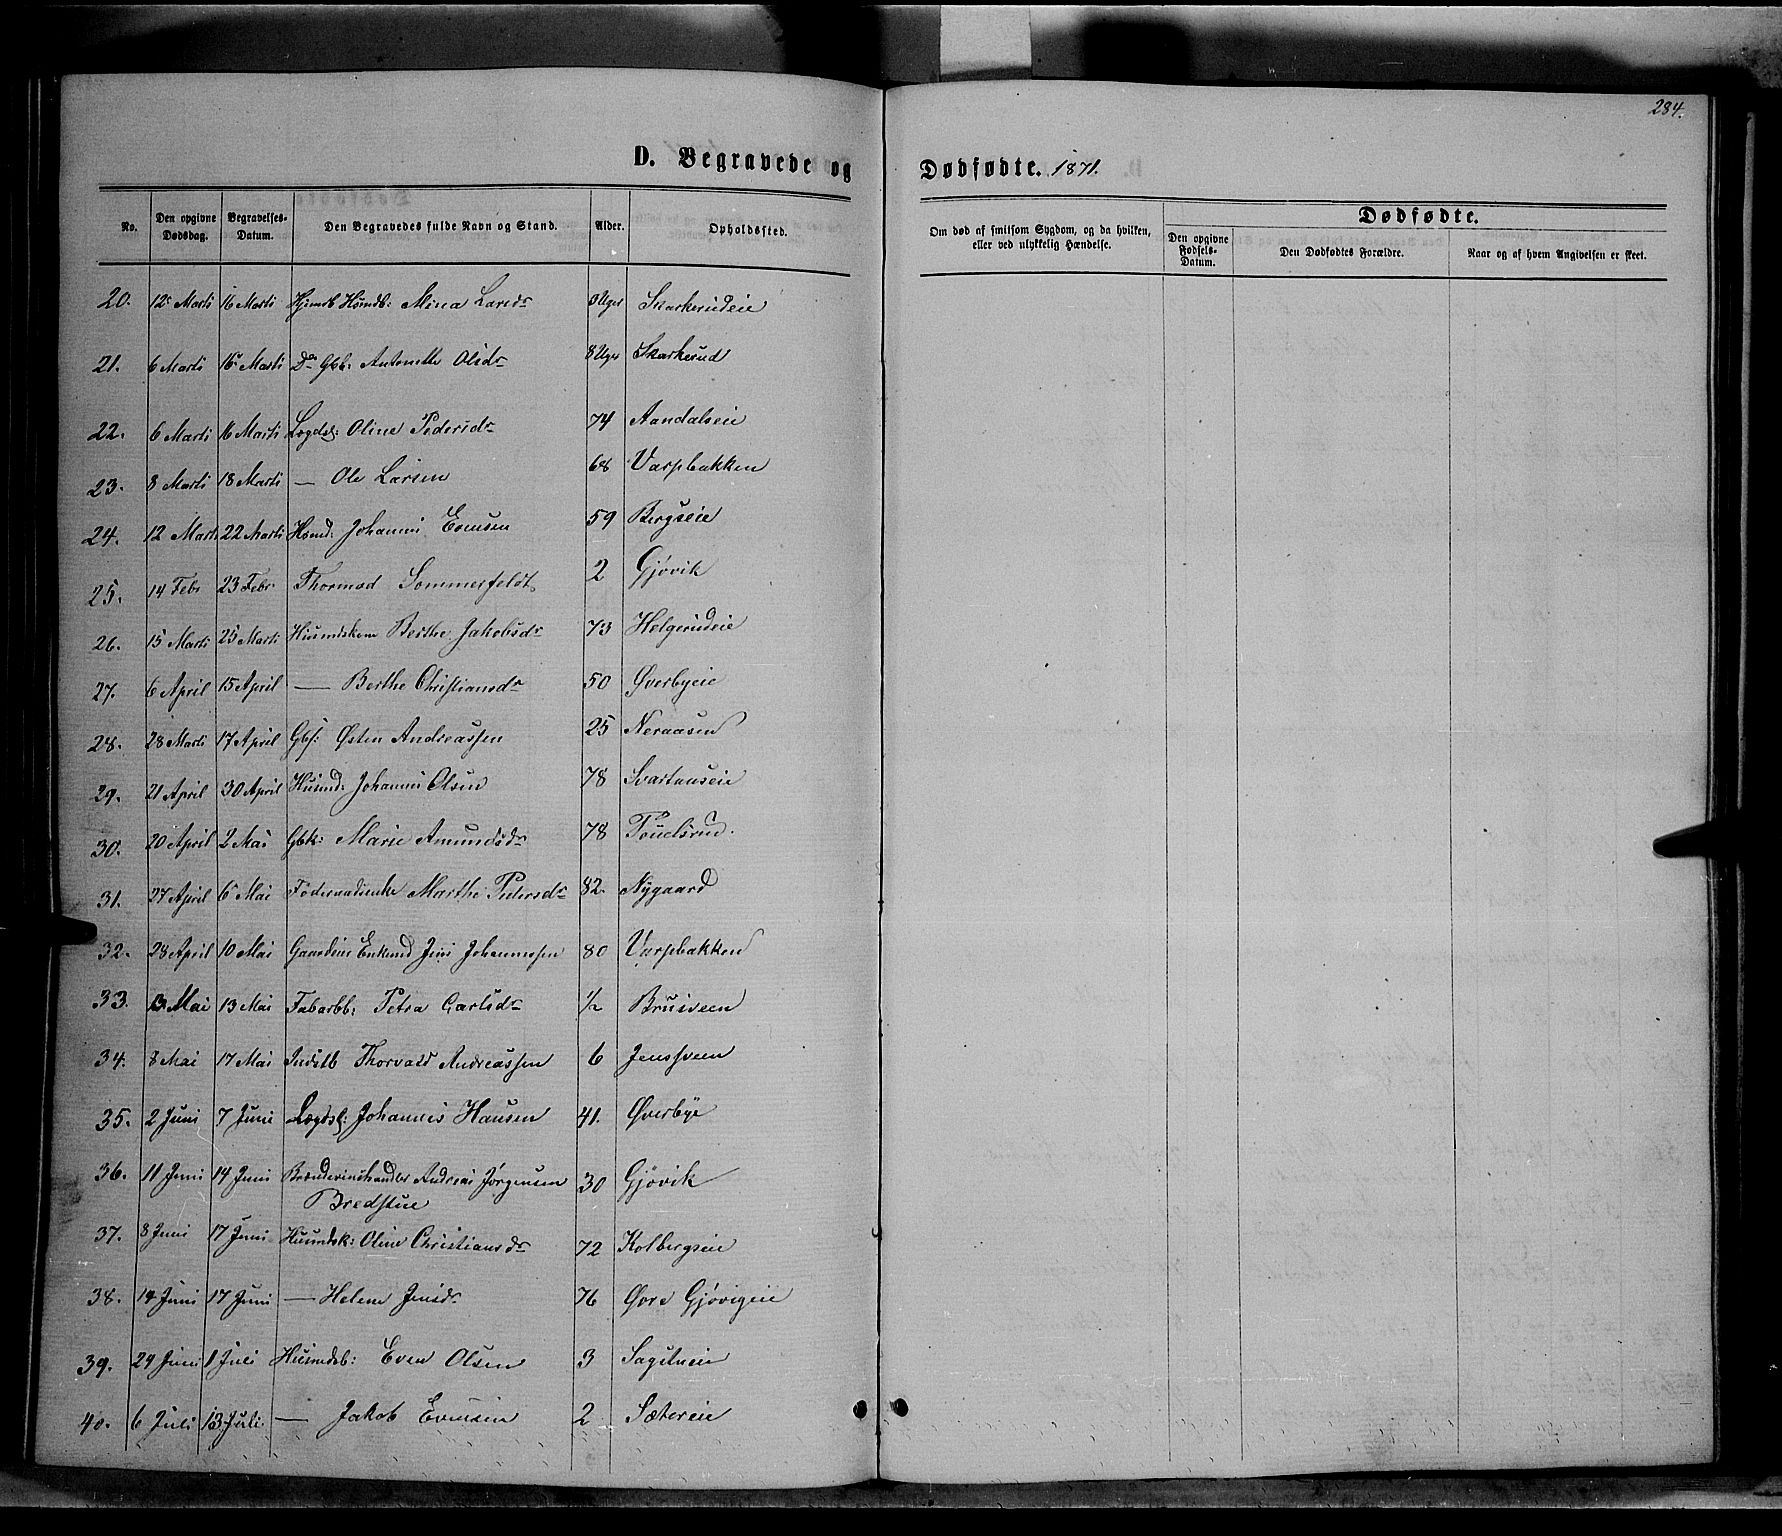 284.
D. Begravede og Dødfødte. 1871.
No. Den opgivne Dødsdag. Begravelses-Datum. Den Begravedes fulde Navn og Stand. Alder. Opholdssted. Om død af smitsom Sygdom, og da hvilken, eller ved ulykkelig Hændelse. Dødfødte. Den opgivne Fødsels-Datum. Den Dødfødtes Forældre. Naar og af hvem Angivelsen er skeet.
20. 12 Marti 16 Marti Mina Larsdr 3 Uger Skarkerudeie
21. 6 Marti 16 Marti Do Gbb: Antonette Olsdr 8 Uger Skarkerud
22. 6 Marti 16 Marti Lægdsl: Oline Pedersdr 74 Aandalseie
23. 8 Marti 18 Marti — Ole Larsen 68 Varpbakken
24. 12 Marti 22 Marti Husmd: Johannes Evensen 59 Bergseie
25. 14 Febr 23 Febr Thormod Sommerfeldt 2 Gjøvik
26. 15 Marti 25 Marti Huusmdskone Berthe Jakobsdr 73 Helgerudeie
27. 6 April 15 April — Berthe Christiansdr 50 Øverbyeie
28. 28 Marti 17 April Gbs: Østen Andreassen 25 Neraasen
29. 21 April 30 April Husmd: Johannes Olsen 78 Svartaaseie
30. 20 April 2 Mai Gbk: Marie Amundsdr 78
31. 27 April 6 Mai Føderaadsenke Marthe Pedersdr 82. Nygaard
32. 28 April 10 Mai Gaardeier Enkemd Jens Johannessen 80 Varpbakken
33. 13 Mai Fabarbb: Petra Carlsdr 1/2 Brusveen
34. 8 Mai 17 Mai Indstb Thorvald Andreassen 6 Jensveen
35. 2 Juni 7 Juni Lægdsl: Johannes Hansen 41. Øverbye
36. 11 Juni 14 Juni Brændeviinshandler Andreas Jørgensen 30 Gjøvik
Bredstue
37. 8 Juni 17 Juni Huusmdsk: Oline Christiansdr 72 Kolbergseie
38. 14 Juni 17 Juni — Helene Jensdr 76 Øvre Gjøvigeie
39. 24 Juni 1 Juli Husmdsb: Even Olsen 3
40. 6 Juli 13 Juli — Jakob Evensen 2 Sætereie